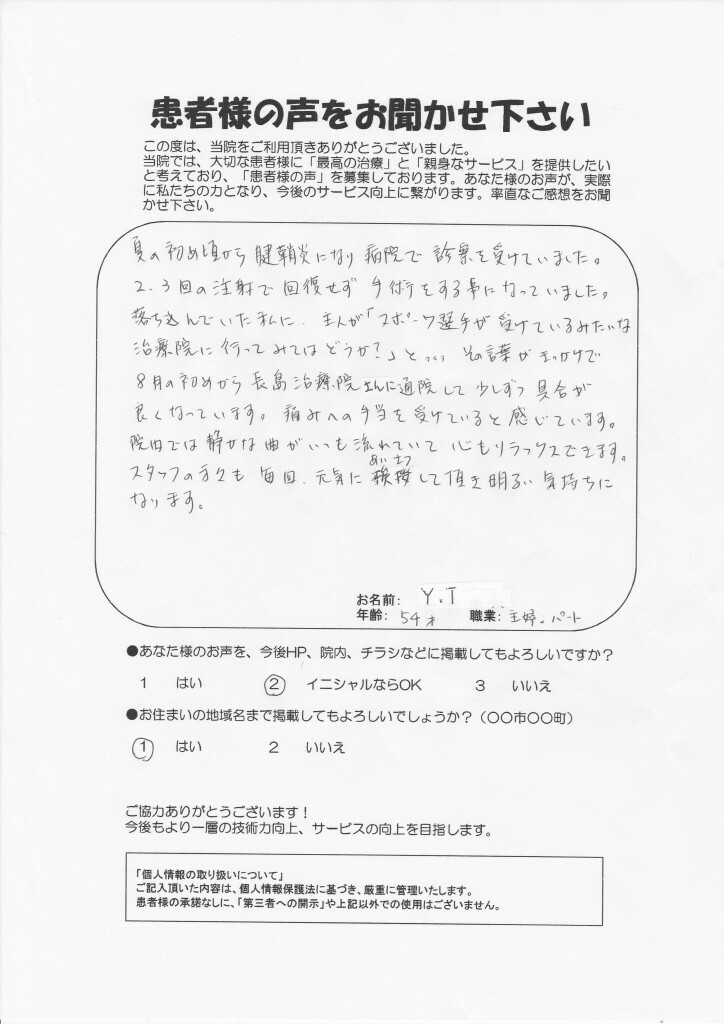 患者様の声をお聞かせ下さい
この度は、当院をご利用頂きありがとうございました。
当院では、大切な患者様に「最高の治療」と「親身なサービス」を提供したい
と考えており、「患者様の声」を募集しております。あなた様のお声が、実際
に私たちの力となり、今後のサービス向上に繋がります。率直なご感想をお聞
かせ下さい。
夏の初め頃から腱鞘炎になり病院で診察を受けていました。
2、3回の注射で回復せず手術をする事になっていました。
落ち込んでいた私に、主人が「スポーツ選手が受けているみたいな
治療院に行ってみてはどうか?」と… その言葉がきっかけで
8月の初めから長島治療院さんに通院して少しずつ具合が
良くなっています。痛みへの手当を受けていると感じています。
院内では静かな曲がいつも流れていて心もリラックスできます。
あいさつ
スタッフの方々も毎回、元気に挨拶して頂き明るい気持ちに
なります。
お名前: Y.T
年齢: 54才 職業: 主婦、パート
●あなた様のお声を、今後HP、院内、チラシなどに掲載してもよろしいですか?
1 はい ② イニシャルならOK 3 いいえ
●お住まいの地域名まで掲載してもよろしいでしょうか?(〇〇市〇〇町)
① はい 2 いいえ
ご協力ありがとうございます!
今後もより一層の技術力向上、サービスの向上を目指します。
「個人情報の取り扱いについて」
ご記入頂いた内容は、個人情報保護法に基づき、厳重に管理いたします。
患者様の承諾なしに、「第三者への開示」や上記以外での使用はございません。